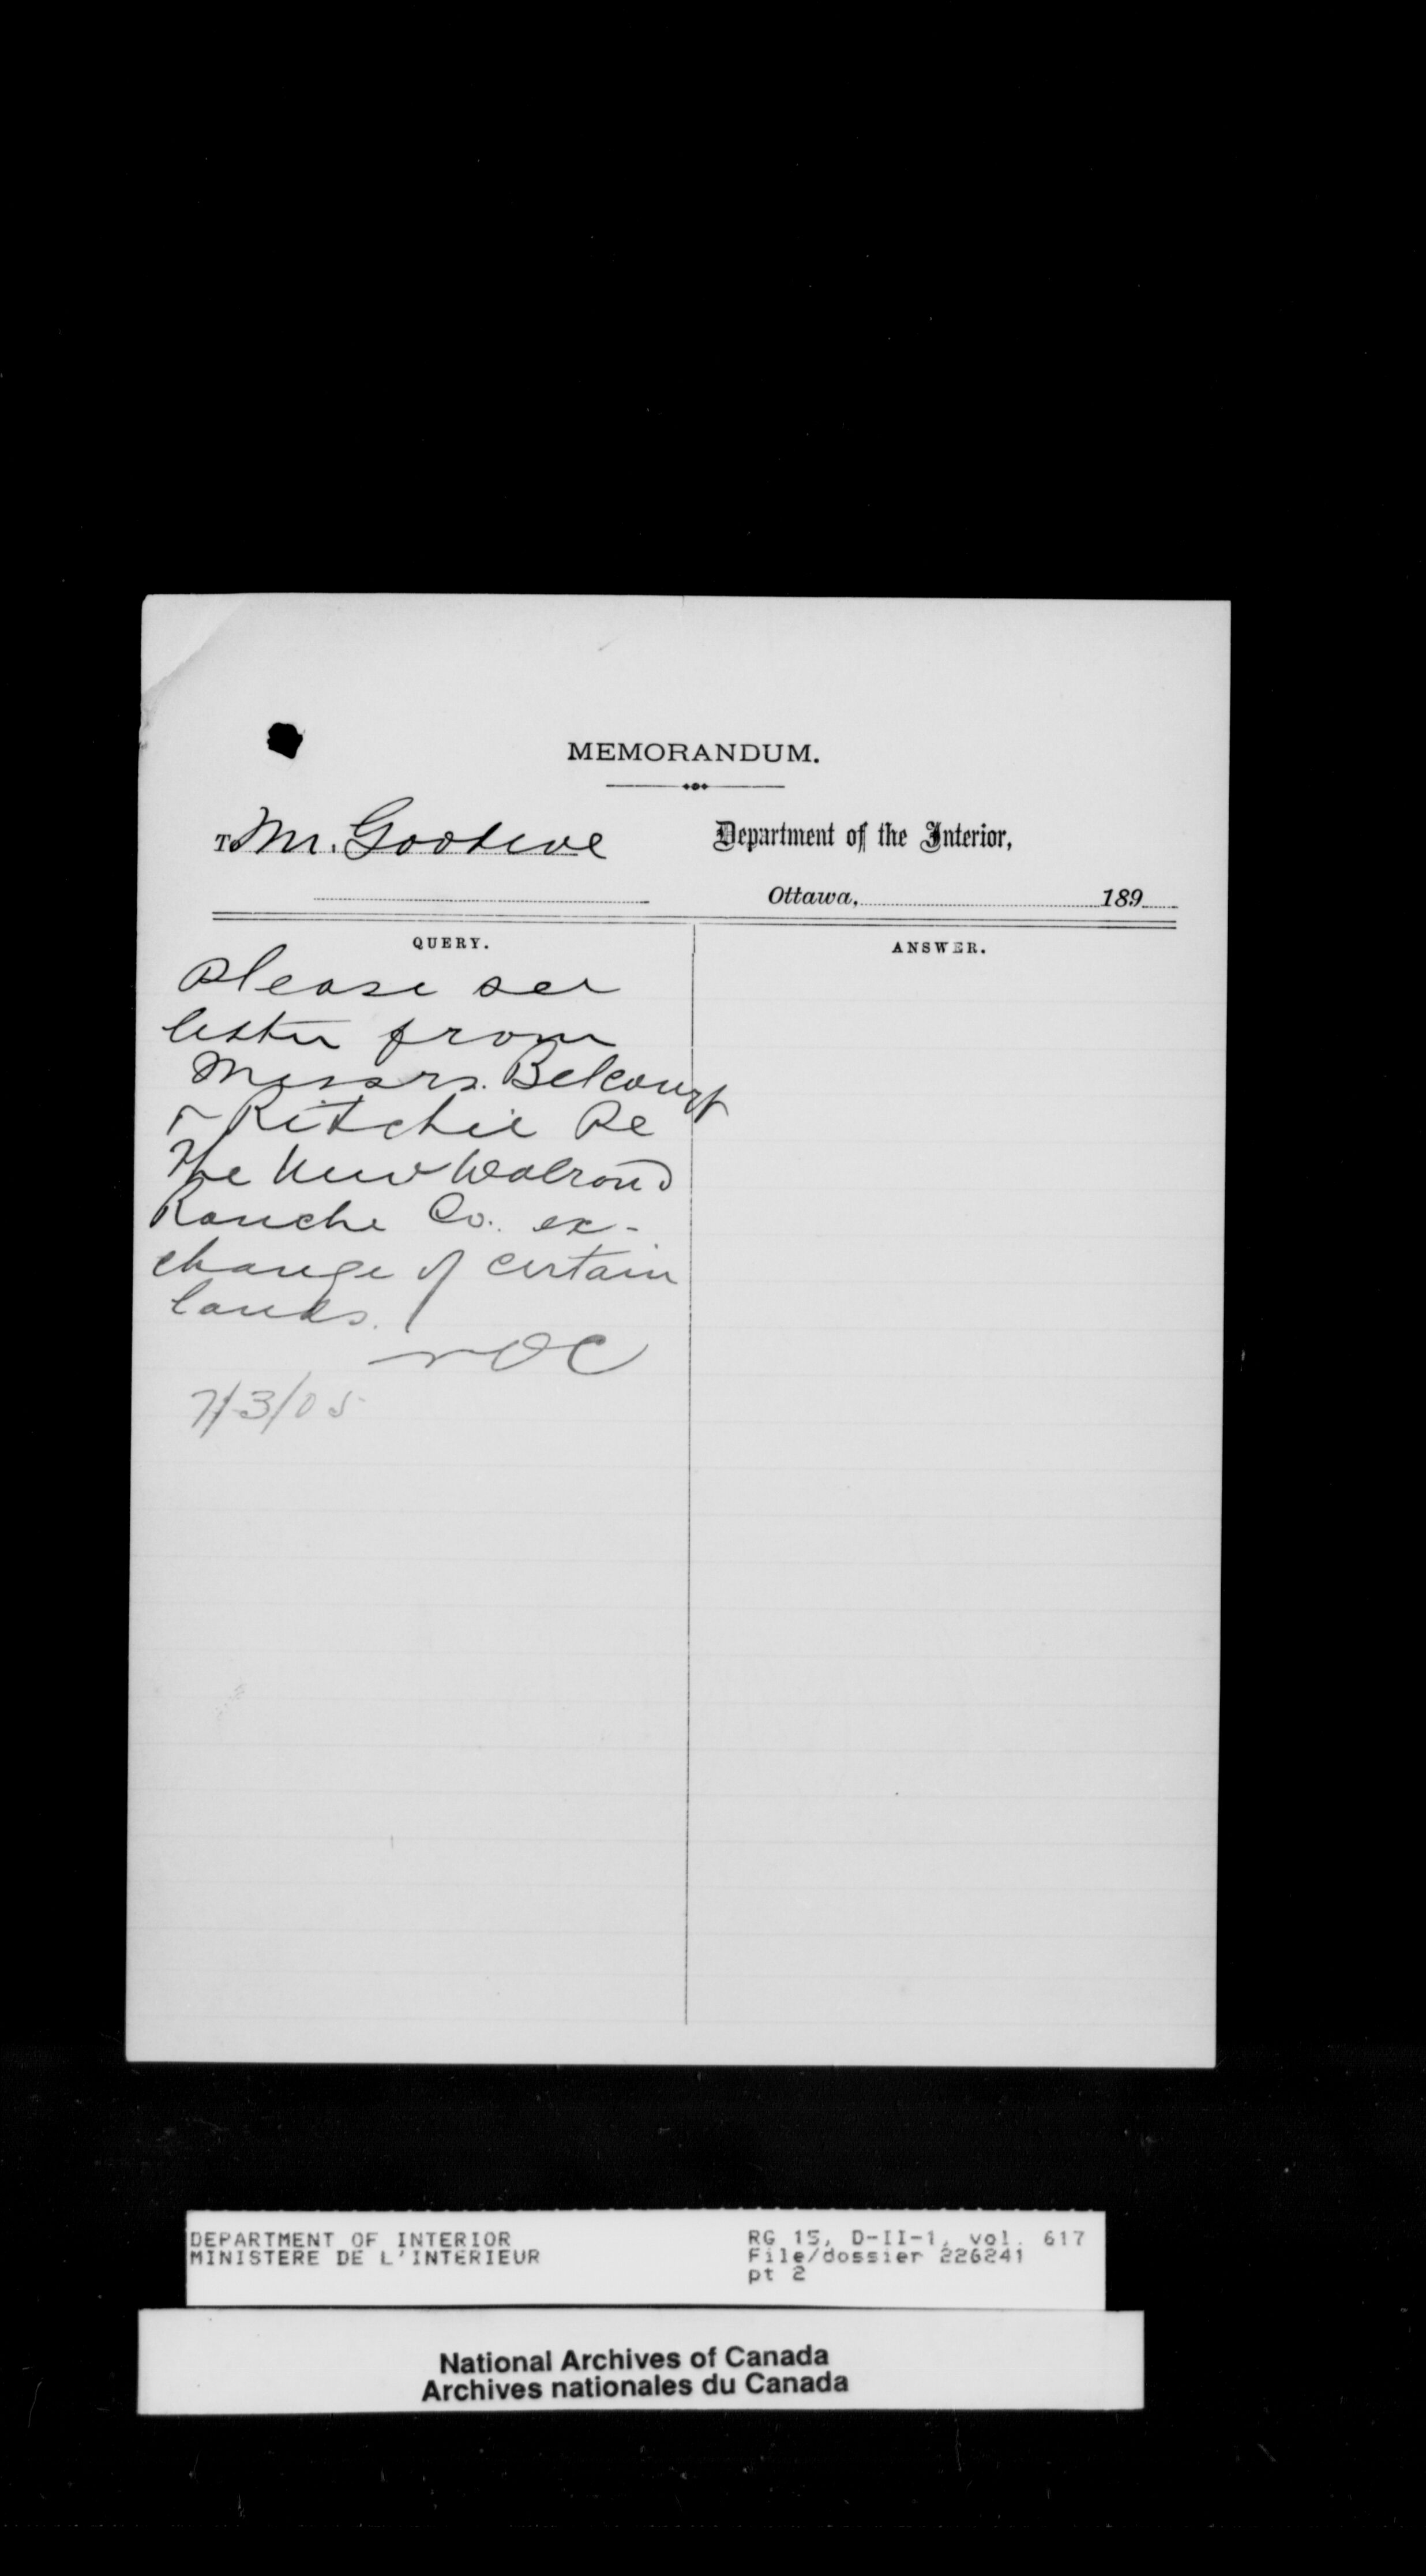 MEMORANDUM.
To Mr. Goodeve
Department of the Interior,
Ottawa, 189
QUERY.
ANSWER.
Please see
letter from
Messrs. Belcourt
& Ritchie Re
The New Walrond
Ranche Co. ex-
change of certain
lands.
7/3/05
DEPARTMENT OF INTERIOR
MINISTERE DE L'INTERIEUR
RG 15, D-II-1, vol. 617
File/dossier 226241
pt 2
National Archives of Canada
Archives nationales du Canada